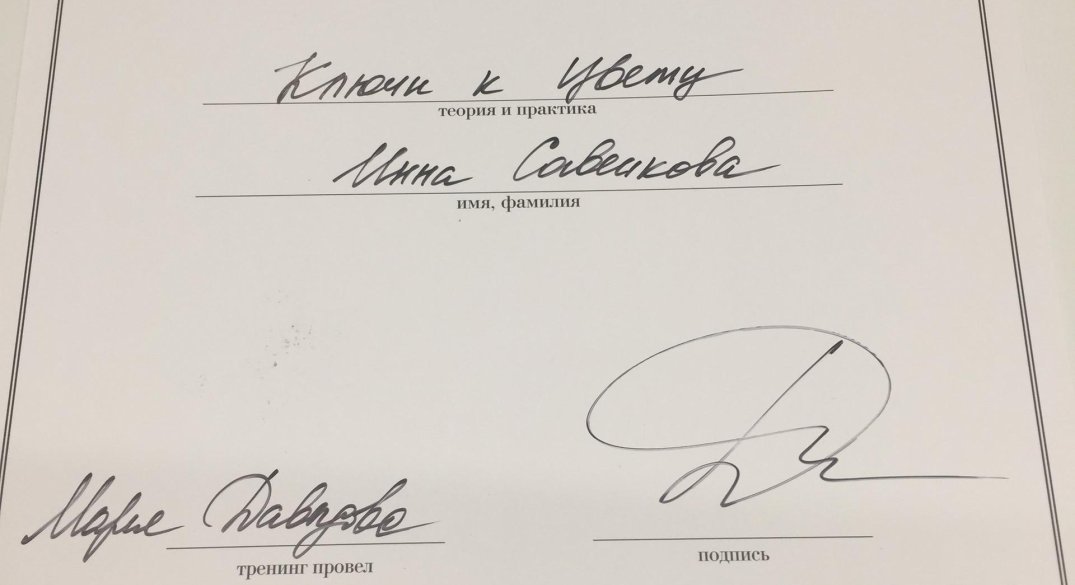 Ключи к цвету
теория и практика
Инна Савенкова
имя, фамилия
Мария Давыдова
тренинг провел
подпись